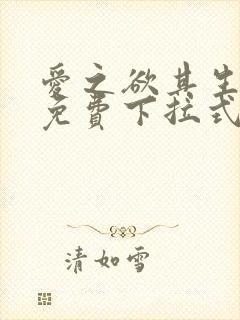 愛之欲其生
免費下拉式
清如雪